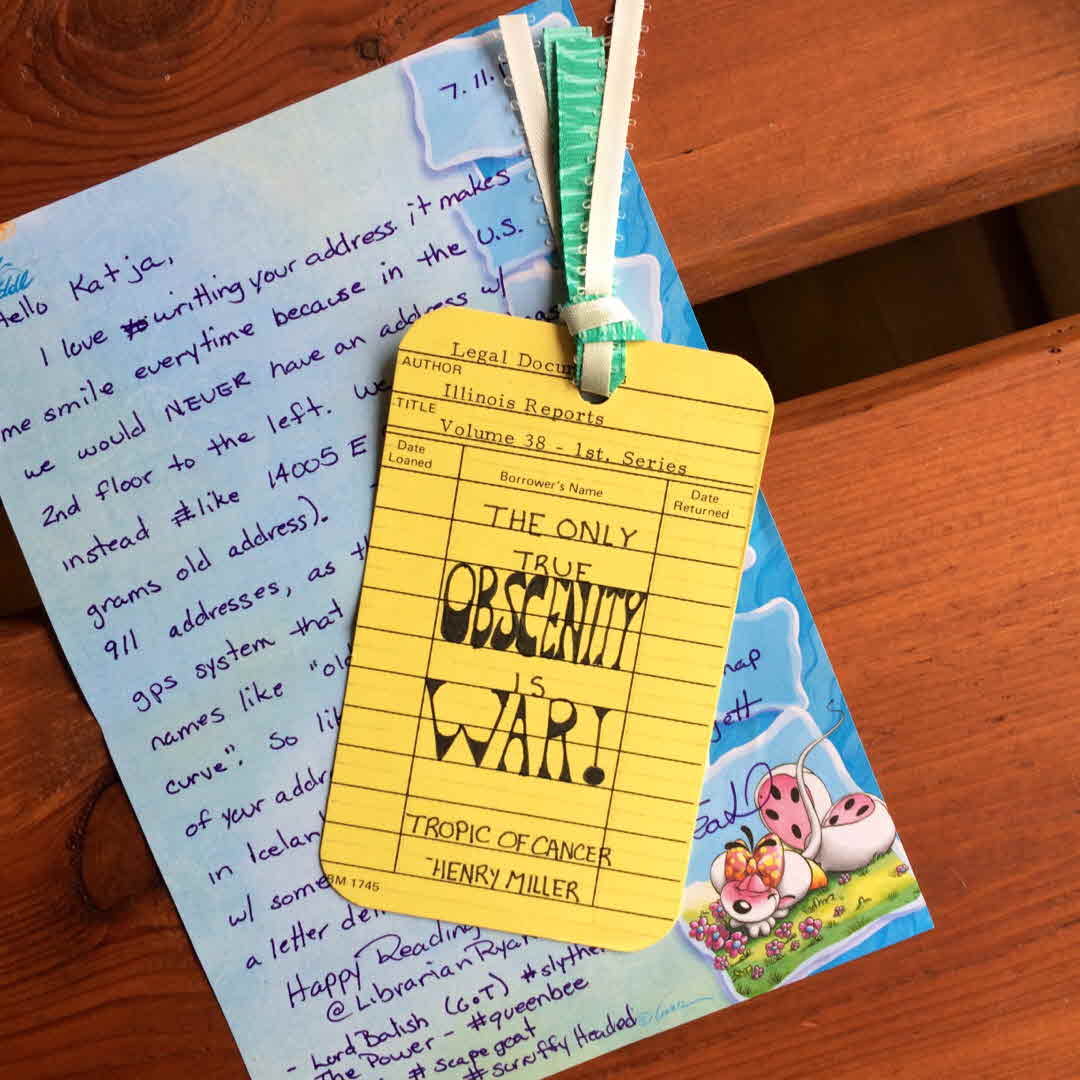 7.11.
Hello Katja,
I love writting your address. it makes
me smile everytime because in the U.S.
we would NEVER have an address w/
2nd floor to the left. We
instead like 14005 E
grams old address).
911 addresses, as
gps system that
names like "old
curve". So
of your addr
in Iceland
w/ some
a letter
Happy Reading
@LibrarianRyan
- Lord Balish (GoT) #slyther
The Power - #queenbee
# scapegoat
# scruffy Headed
map
Legal Docu
AUTHOR
Illinois Reports
TITLE
Volume 38 - 1st. Series
Date Loaned
Borrower's Name
Date Returned
THE ONLY
TRUE
OBSCENITY
IS
WAR!
TROPIC OF CANCER
HENRY MILLER
BM 1745